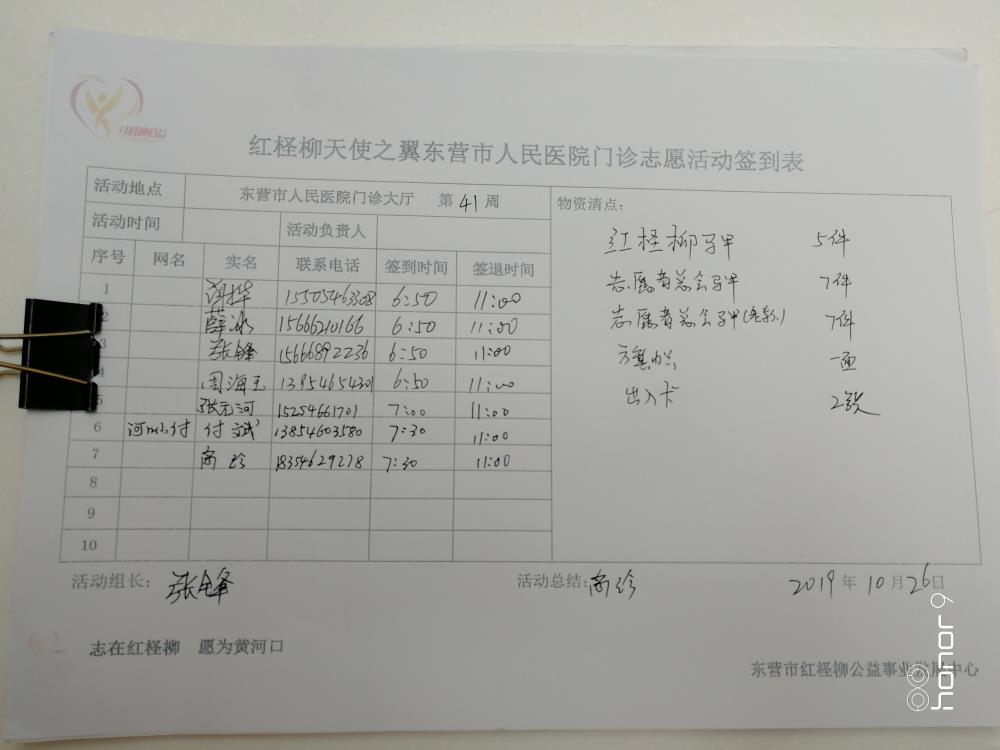 红柽柳天使之翼东营市人民医院门诊志愿活动签到表
活动地点 东营市人民医院门诊大厅 第41周
活动时间 活动负责人
序号 网名 实名 联系电话 签到时间 签退时间
1 15505463308 6:50 11:00
2 薛冰 15666210166 6:50 11:00
3 张锋 15666892236 6:50 11:00
4 周海玉 13954654301 6:50 11:00
5 张元河 15254661701 7:00 11:00
6 付斌 13854603580 7:30 11:00
7 商珍 18354629278 7:30 11:00
8
9
10
物资清点：
红柽柳马甲 5件
志愿者总会马甲 7件
志愿者总会马甲 7件
旗帜 一面
出入卡 2张
活动组长：张锋
活动总结：商珍
2019年10月26日
志在红柽柳 愿为黄河口
东营市红柽柳公益事业发展中心
honor 9